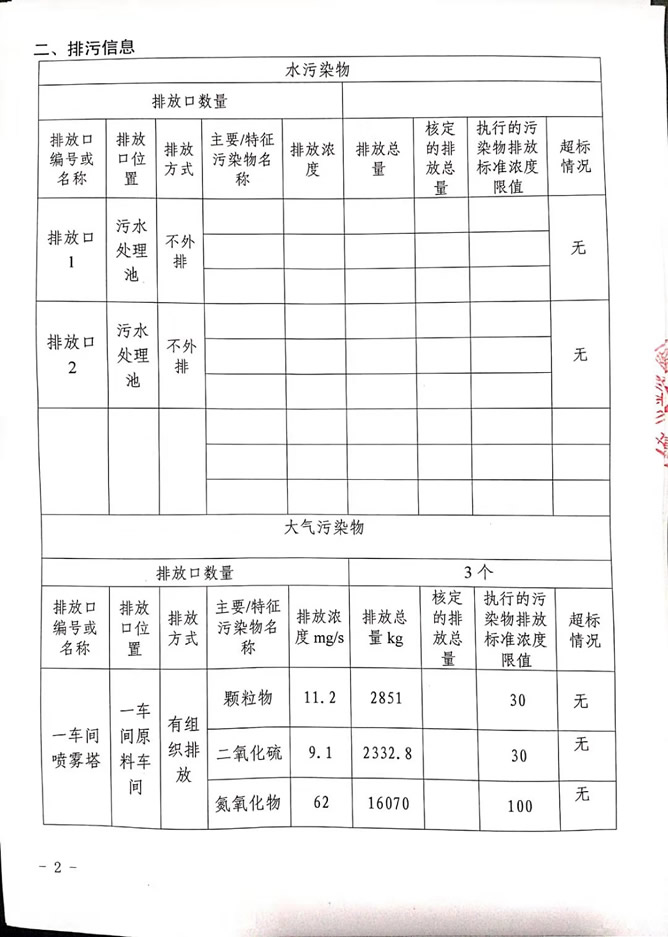 二、排污信息
水污染物
排放口数量
排放口
编号或
名称
排放
口位
置
排放
方式
主要/特征
污染物名
称
排放浓
度
排放总
量
核定
的排
放总
量
执行的污
染物排放
标准浓度
限值
超标
情况
排放口
1
污水
处理
池
不外
排
无
排放口
2
污水
处理
池
不外
排
无
大气污染物
排放口数量
3个
排放口
编号或
名称
排放
口位
置
排放
方式
主要/特征
污染物名
称
排放浓
度 mg/s
排放总
量 kg
核定
的排
放总
量
执行的污
染物排放
标准浓度
限值
超标
情况
一车间
喷雾塔
一车
间原
料车
间
有组
织排
放
颗粒物
11.2
2851
30
无
二氧化硫
9.1
2332.8
30
无
氮氧化物
62
16070
100
无
- 2 -